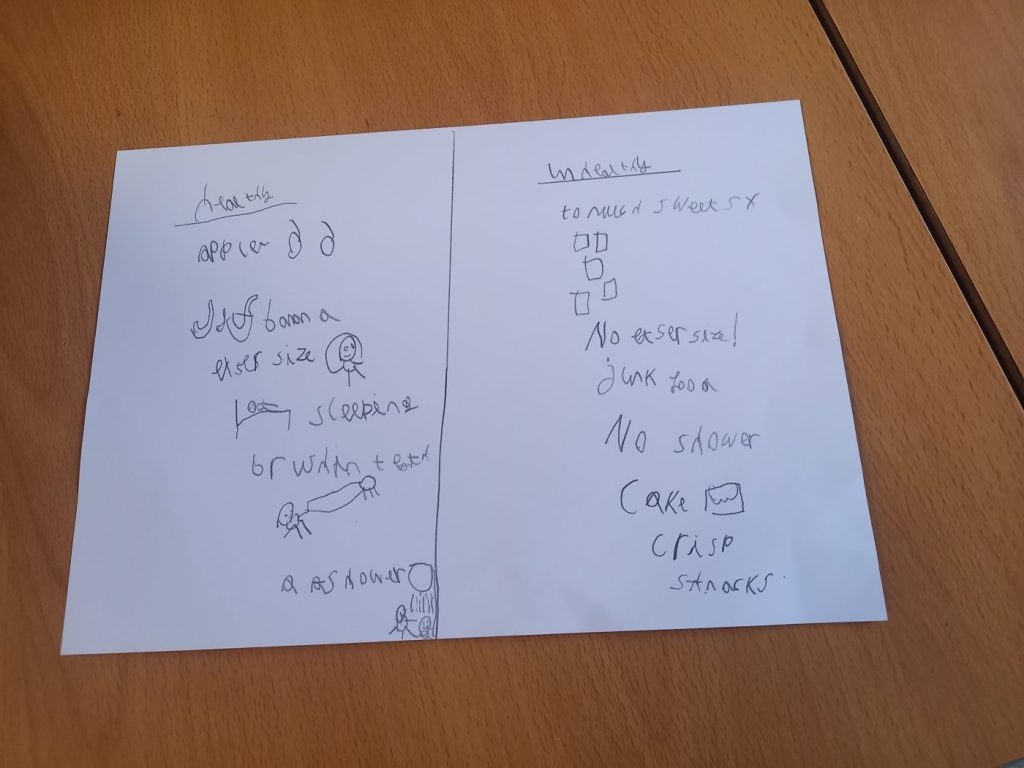 healthy
apples
banana
exser size
sleeping
a a shower
unhealthy
to much sweets x
No exser size!
junk food
No shower
Cake
crisp
snacks.